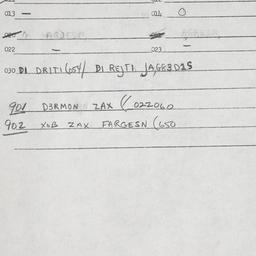 013 — 014 O
022 — 023 —
030 DI DRITI (654) DI REJTI.
901 D3RMON ZAX ( 022060
902 XUB ZAX FARGESN (650